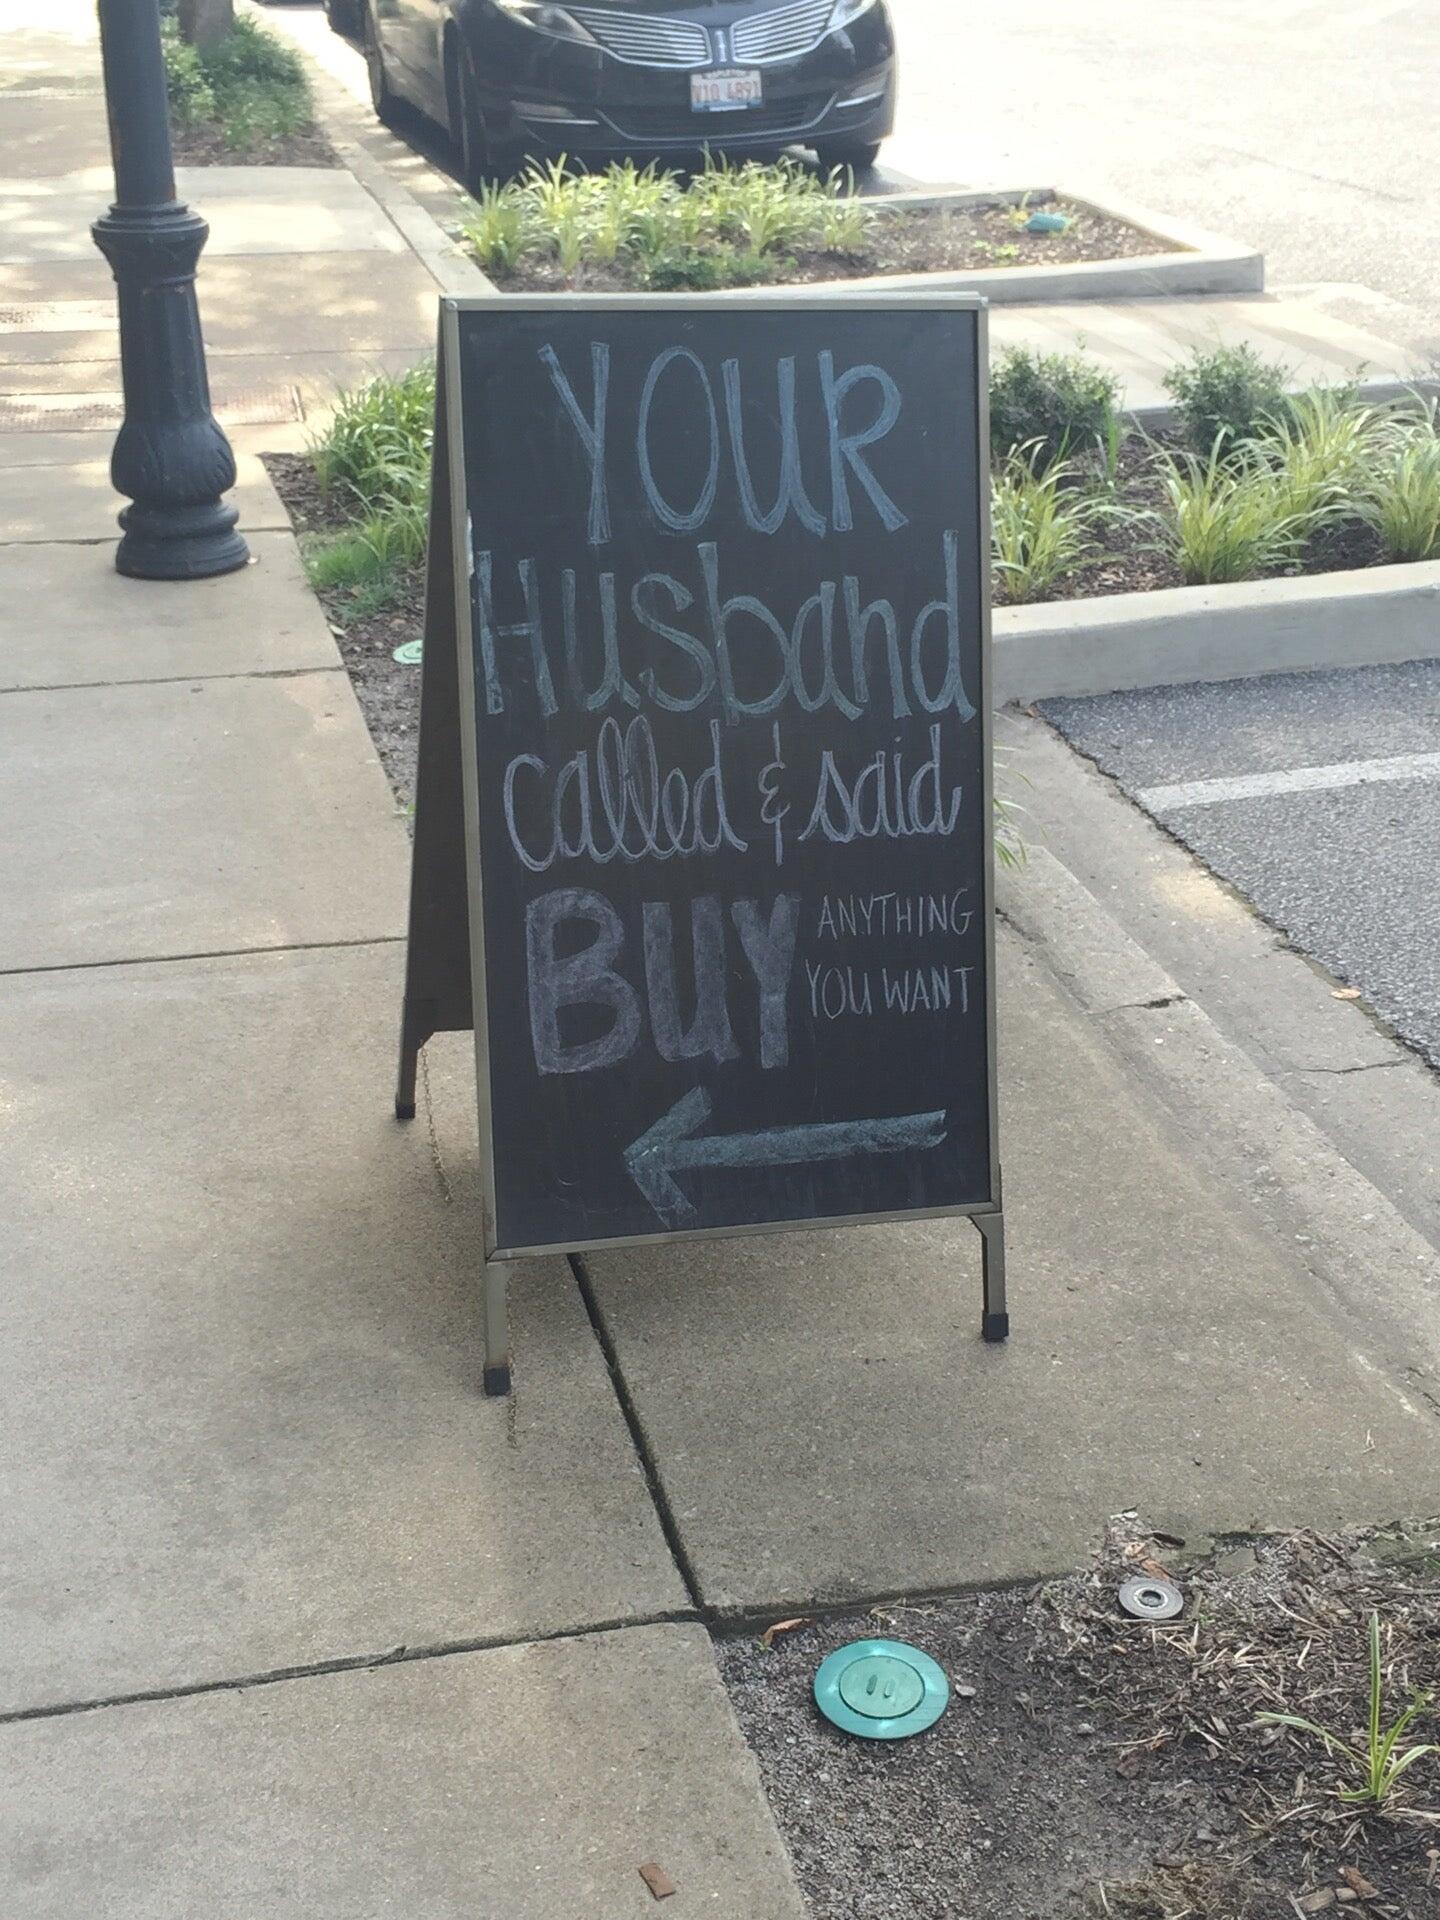 V10 4891
YOUR
Husband
called & said
BUY ANYTHING
YOU WANT